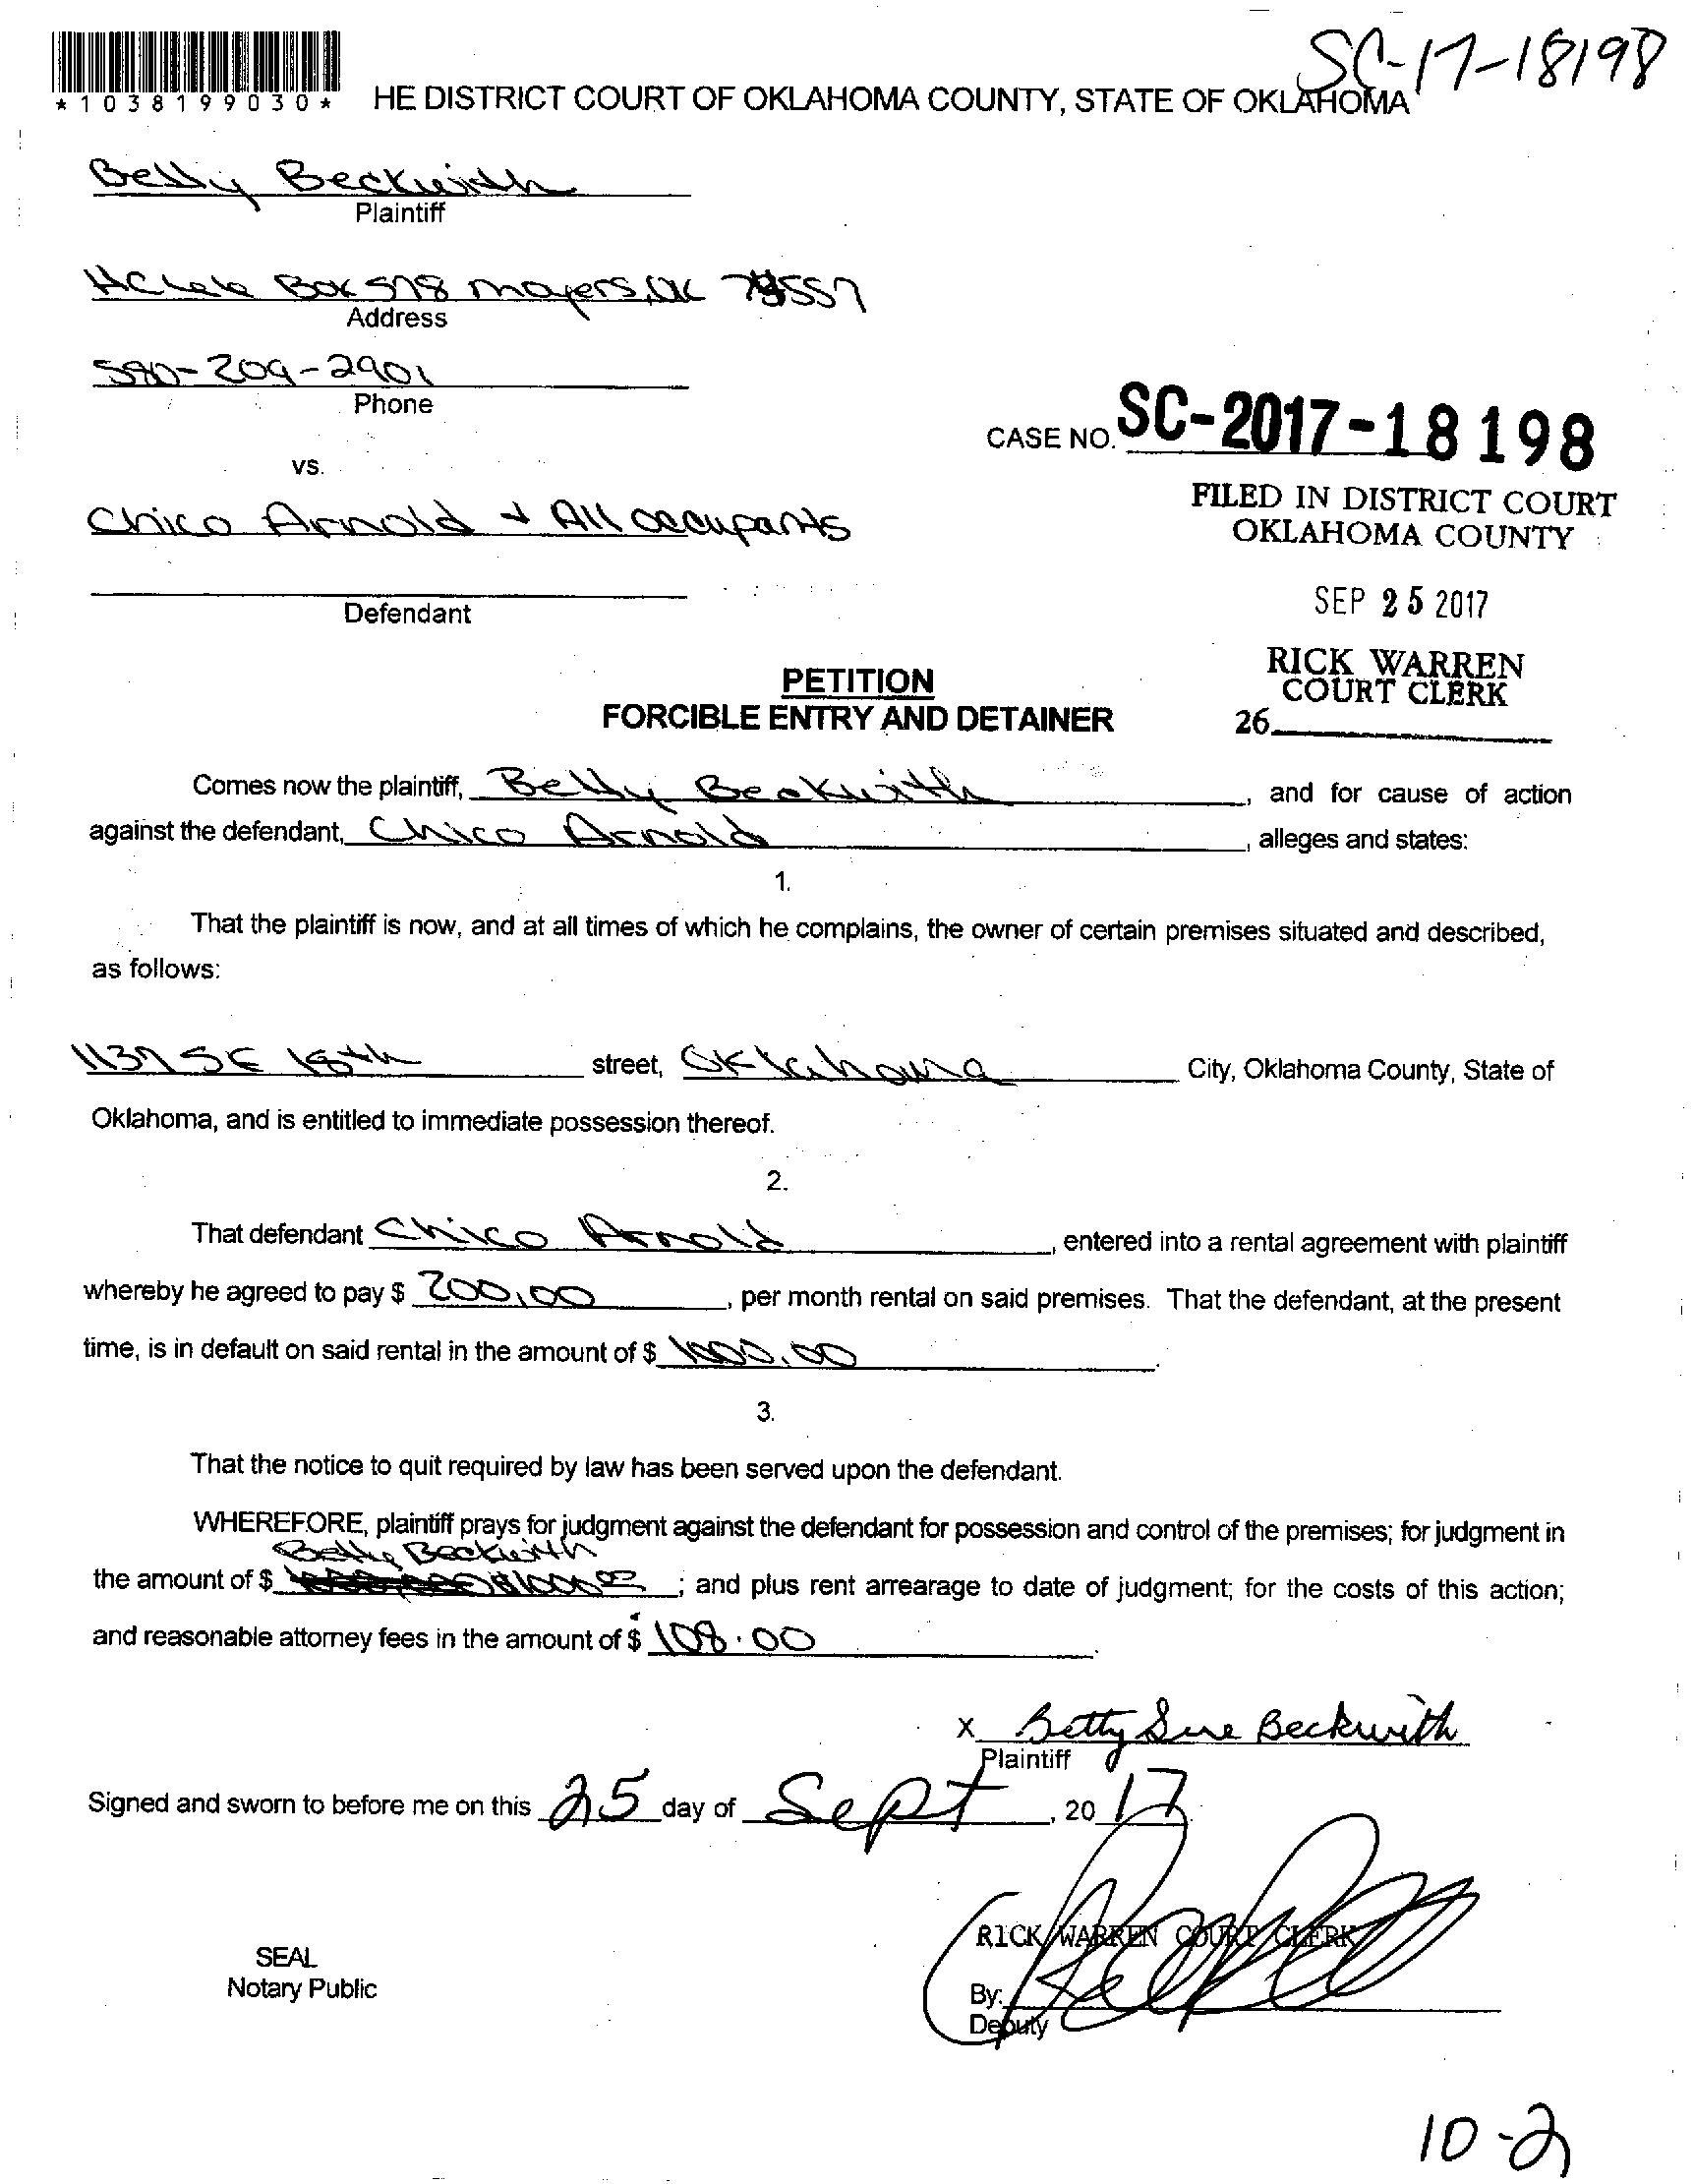 SC-17-18198
*1038199030*
HE DISTRICT COURT OF OKLAHOMA COUNTY, STATE OF OKLAHOMA
Betty Beckwith
Plaintiff
Box 578 Moyers, OK 74557
Address
580-209-2901
Phone
CASE NO. SC-2017-18198
vs.
FILED IN DISTRICT COURT
OKLAHOMA COUNTY
Chico Arnold + All occupants
SEP 25 2017
Defendant
RICK WARREN
COURT CLERK
26
PETITION
FORCIBLE ENTRY AND DETAINER
Comes now the plaintiff, Betty Beckwith, and for cause of action
against the defendant, Chico Arnold, alleges and states:
1.
That the plaintiff is now, and at all times of which he complains, the owner of certain premises situated and described,
as follows:
1137 SE 18th street, Oklahoma City, Oklahoma County, State of
Oklahoma, and is entitled to immediate possession thereof.
2.
That defendant Chico Arnold, entered into a rental agreement with plaintiff
whereby he agreed to pay $ 200.00, per month rental on said premises. That the defendant, at the present
time, is in default on said rental in the amount of $ 1000.00.
3.
That the notice to quit required by law has been served upon the defendant.
WHEREFORE, plaintiff prays for judgment against the defendant for possession and control of the premises; for judgment in
Betty Beckwith
the amount of $ $1000.00; and plus rent arrearage to date of judgment; for the costs of this action;
and reasonable attorney fees in the amount of $ 108.00.
x Betty Sue Beckwith
Plaintiff
Signed and sworn to before me on this 25 day of Sept, 2017.
RICK WARREN COURT CLERK
SEAL
Notary Public
By:
Deputy
10-2